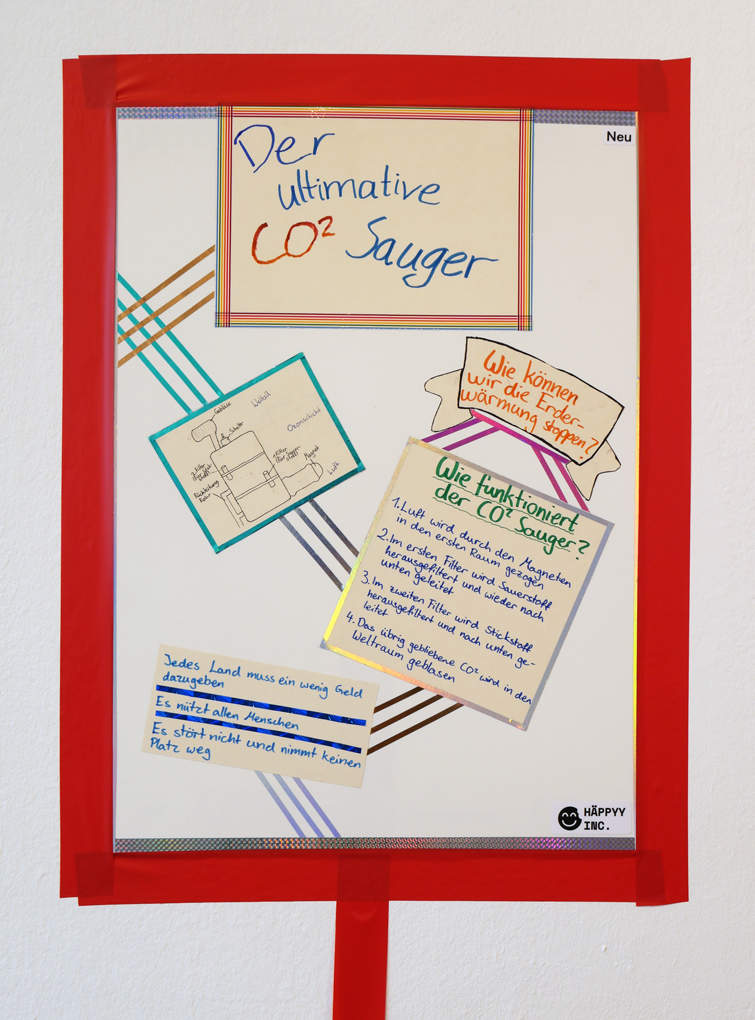 Neu
Der
ultimative
CO² Sauger
Wie können
wir die Erder-
wärmung stoppen?
Gebläse
Weltall
Schalter
Ozonschicht
Magnet
Luft
Wie funktioniert
der CO² Sauger?
1. Luft wird durch den Magneten
in den ersten Raum gezogen
2. Im ersten Filter wird Sauerstoff
herausgefiltert und wieder nach
unten geleitet
3. Im zweiten Filter wird Stickstoff
herausgefiltert und nach unten ge-
leitet
4. Das übrig gebliebene CO² wird in den
Weltraum geblasen
Jedes Land muss ein wenig Geld
dazugeben
Es nützt allen Menschen
Es stört nicht und nimmt keinen
Platz weg
HÄPPYY
INC.